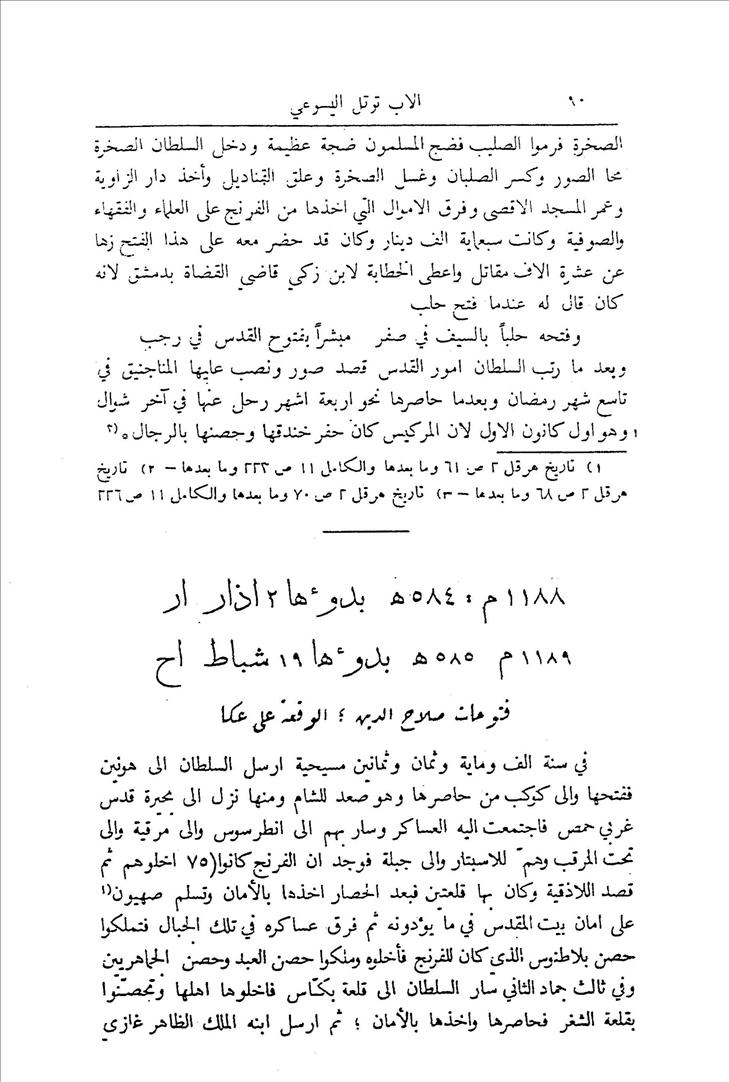 ٩٠
الاب توتل اليسوعي
الصخرة فرموا الصليب فضج المسلمون ضجة عظيمة ودخل السلطان الصخرة
محا الصور وكسر الصلبان وغسل الصخرة وعلق القناديل وأخذ دار الزاوية
وعمر المسجد الاقصى وفرق الاموال التي اخذها من الفرنج على العلماء والفقهاء
والصوفية وكانت سبعماية الف دينار وكان قد حضر معه على هذا الفتح زها
عن عشرة الاف مقاتل واعطى الخطابة لابن زكي قاضي القضاة بدمشق لانه
كان قال له عندما فتح حلب
وفتحه حلباً بالسيف في صفر مبشراً بفتوح القدس في رجب
وبعد ما رتب السلطان امور القدس قصد صور ونصب عليها المناجنيق في
تاسع شهر رمضان وبعدما حاصرها نحو اربعة اشهر رحل عنها في آخر شوال
وهو اول كانون الاول لان المركيس كان حفر خندقها وحصنها بالرجال (٣
١) تاريخ هرقل ٢ ص ٦١ وما بعدها والكامل ١١ ص ٢٢٣ وما بعدها – ٢) تاريخ
هرقل ٢ ص ٦٨ وما بعدها – ٣) تاريخ هرقل ٢ ص ٧٠ وما بعدها والكامل ١١ ص ٢٢٦
١١٨٨ م : ٥٨٤ ه بدوءها ٢ اذار ار
١١٨٩ م ٥٨٥ ه بدوءها ١٩ شباط اح
فتوحات صلاح الدين ؛ الوقعة على عكا
في سنة الف وماية وثمان وثمانين مسيحية ارسل السلطان الى هونين
ففتحها والى كوكب من حاصرها وهو صعد للشام ومنها نزل الى بحيرة قدس
غربي حمص فاجتمعت اليه العساكر وسار بهم الى انطرسوس والى مرقية والى
تحت المرقب وهم للاسبتار والى جبلة فوجد ان الفرنج كانوا (٧٥ اخلوهم ثم
قصد اللاذقية وكان بها قلعتين فبعد الحصار اخذها بالأمان وتسلم صهيون (١
على امان بيت المقدس في ما يؤدونه ثم فرق عساكره في تلك الجبال فتملكوا
حصن بلاطنوس الذي كان للفرنج فأخلوه وملكوا حصن العبد وحصن الجماهريين
وفي ثالث جماد الثاني سار السلطان الى قلعة بكاس فاخلوها اهلها وتحصنوا
بقلعة الشغر فحاصرها واخذها بالأمان ؛ ثم ارسل ابنه الملك الظاهر غازي